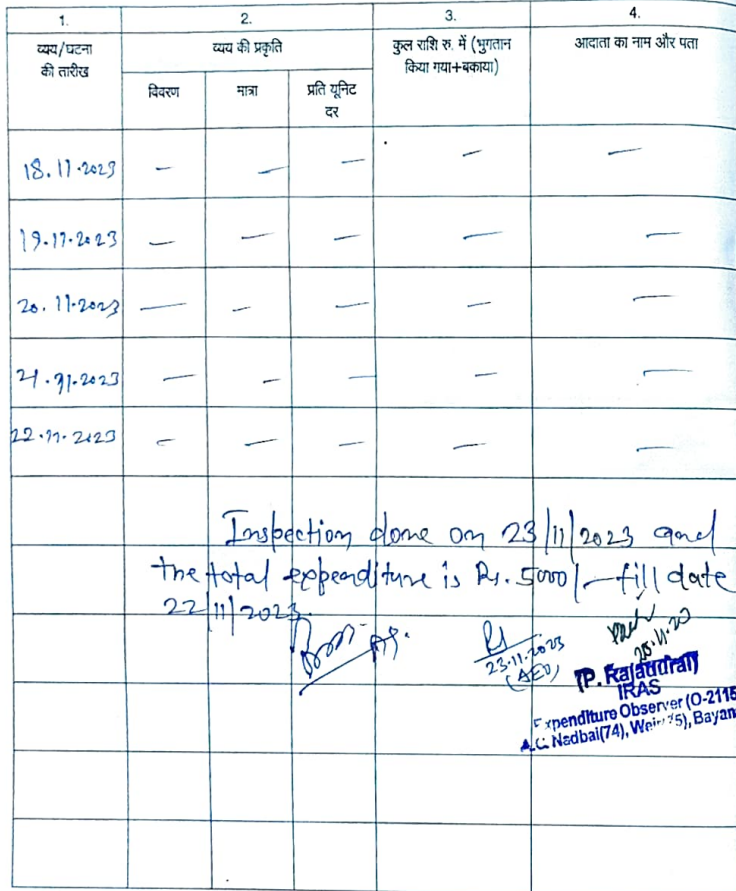 1. 2. 3. 4.
व्यय/घटना की तारीख
व्यय की प्रकृति
कुल राशि रु. में (भुगतान किया गया+बकाया)
आदाता का नाम और पता
विवरण मात्रा प्रति यूनिट दर
18.11.2023 - - - - -
19.11.2023 - - - - -
20.11.2023 - - - - -
21.11.2023 - - - - -
22.11.2023 - - - - -
Inspection done on 23/11/2023 and
the total expenditure is Rs. 5000/- till date
22/11/2023.
23.11.2023
(AEO)
IRAS
Expenditure Observer (O-2115
A.C. Nadbai(74), Bayan